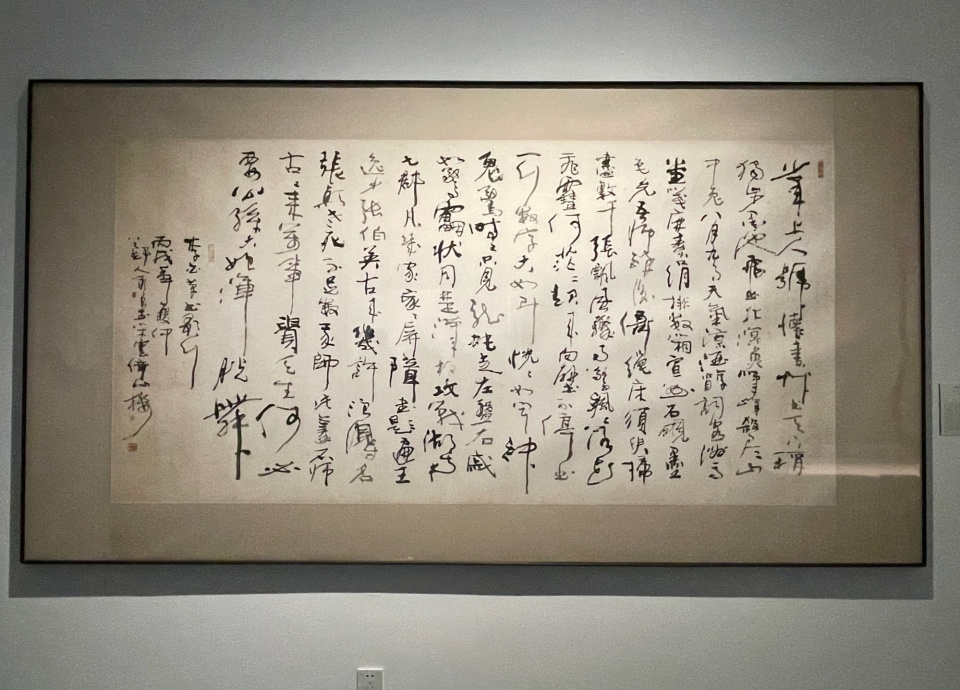 年上人號懷素草書天下稱
獨步墨池飛出北溟魚筆鋒殺盡山
中兔八月九月天氣涼酒徒詞客滿高
堂箋麻素絹排數箱宣州石硯墨
色光吾師醉後倚繩床須臾掃
盡數千張飄風驟雨驚颯落花
飛雪何茫茫起來向壁不停手
一行數字大如斗怳怳如聞神
鬼驚時時只見龍蛇走左盤右蹙
如驚電狀同楚漢相攻戰湖南
七郡凡幾家家家屏障書題遍王
逸少張伯英古來幾許浪得名
張顛老死不足數我師此義不師
古古來萬事貴天生何必
要公孫大娘渾脫舞
李白草書歌行
丙戌年